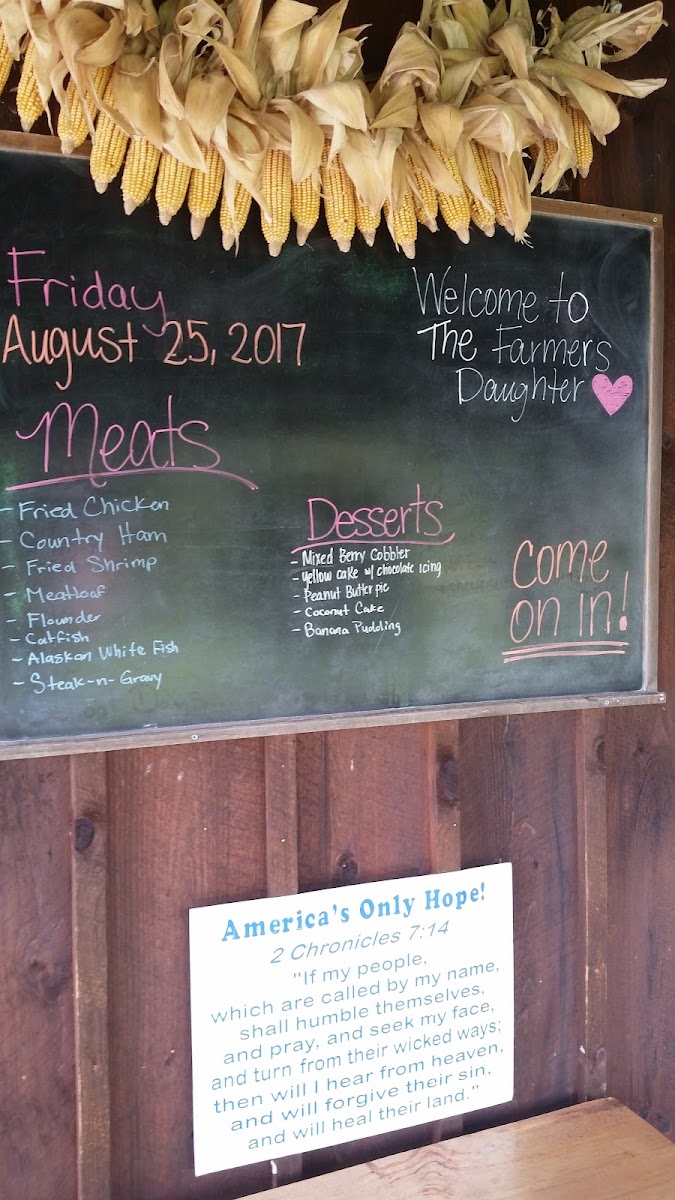 Friday
August 25, 2017
Welcome to
The Farmers
Daughter
Meats
- Fried Chicken
- Country Ham
- Fried Shrimp
- Meatloaf
- Flounder
- Catfish
- Alaskan White Fish
- Steak-n-Gravy
Desserts
- Mixed Berry Cobbler
- Yellow cake w/ chocolate icing
- Peanut Butter pie
- Coconut Cake
- Banana Pudding
Come
on in!
America's Only Hope!
2 Chronicles 7:14
"If my people,
which are called by my name,
shall humble themselves,
and pray, and seek my face,
and turn from their wicked ways;
then will I hear from heaven,
and will forgive their sin,
and will heal their land."